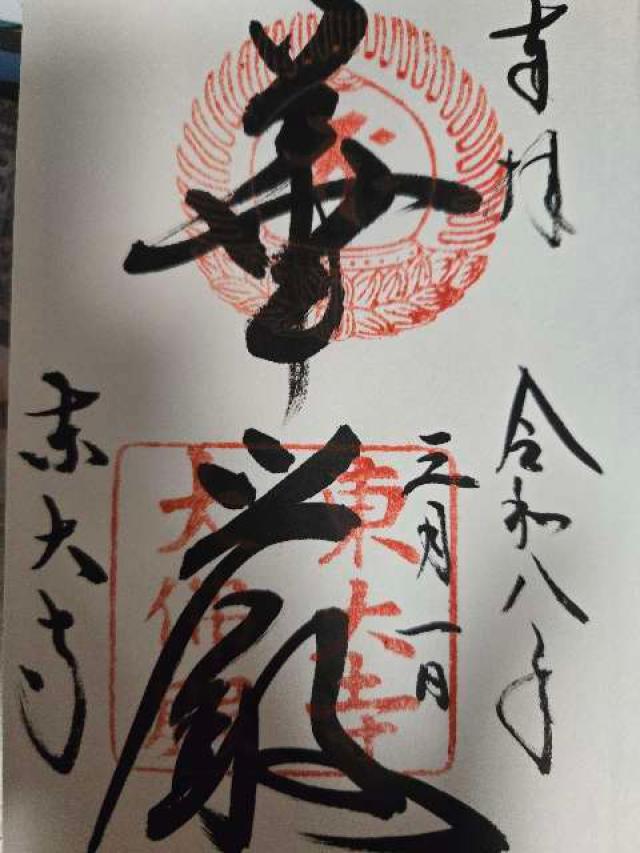 奉拝
令和八年
三月一日
華厳
東大寺
大佛殿
東大寺